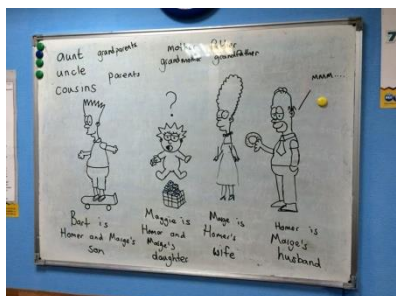 aunt grandparents mother father
uncle parents grandmother grandfather
cousins
mmm....
?
Bart is
Homer and Marge's
son
Maggie is
Homer and
Marge's
daughter
Marge is
Homer's
wife
Homer is
Marge's
husband
7